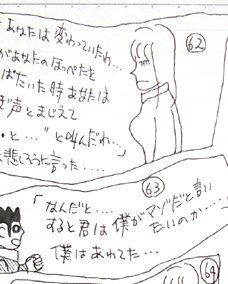 あなたは変わっていたわ…
があなたのほっぺたを
ばたいた時あなたは
声とまじえて
・と…”と叫んだわ…」
悲しそうに言った……
62
63
「なんだと…
すると君は僕がマゾだと言い
たいのか……
僕はあわてた…
64